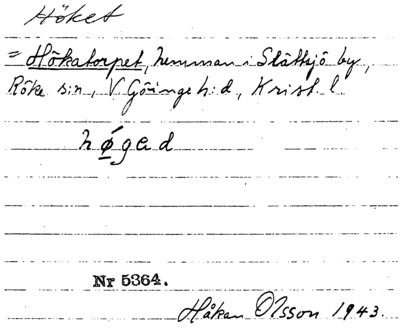 Höket
= Hökatorpet, hemman i Slättsjö by,
Röke s:n, V Göinge h:d, Krist. l.
hǿgad
Nr 5364.
Håkan Olsson 1943.